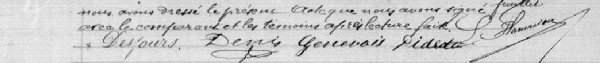 nous avons dressé le présent Acte que nous avons signé feuillet
avec le comparant et les témoins après lecture faite.
Desjours. Denis Genevois